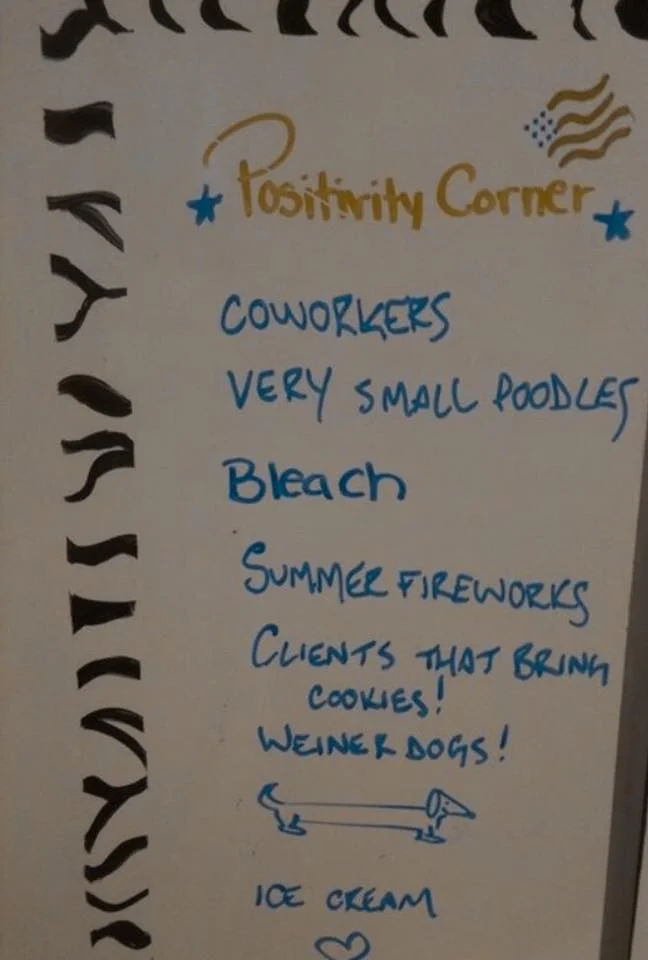 Positivity Corner
COWORKERS
VERY SMALL POODLES
Bleach
SUMMER FIREWORKS
CLIENTS THAT BRING
COOKIES!
WEINER DOGS!
ICE CREAM